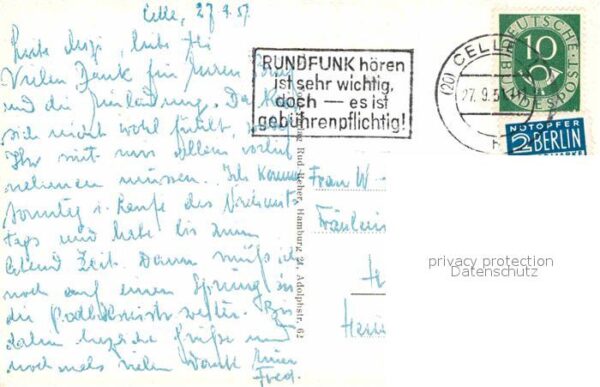 Celle, 27.9.5
Vielen Dank für Euren
und die Einladung. Da
sich nicht wohl fühlt,
Ihr mit mir allein vorlieb
nehmen müssen. Ich komme
Sonntag i. Laufe des Vormit
tags und habe bis zum
Abend Zeit. Dann muß ich
noch auf einen Sprung in
die weiter. Bis
dahin herzliche Grüße und
nochmals vielen Dank Euer
Fred.
RUNDFUNK hören
ist sehr wichtig,
doch — es ist
gebührenpflichtig!
(20) CELLE
27.9.5
DEUTSCHE
BUNDESPOST
10
NOTOPFER
2 BERLIN
STEUERMARKE
Verlag Rud. Reher, Hamburg 21, Adolphstr. 62
Frau W
Fräulein
H
privacy protection
Datenschutz